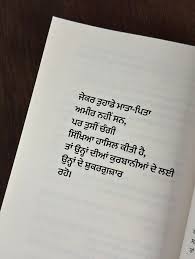 ਜੇਕਰ ਤੁਹਾਡੇ ਮਾਤਾ-ਪਿਤਾ
ਅਮੀਰ ਨਹੀ ਸਨ,
ਪਰ ਤੁਸੀਂ ਚੰਗੀ
ਸਿੱਖਿਆ ਹਾਸਿਲ ਕੀਤੀ ਹੈ,
ਤਾਂ ਉਨ੍ਹਾਂ ਦੀਆਂ ਕੁਰਬਾਨੀਆਂ ਦੇ ਲਈ
ਉਨ੍ਹਾਂ ਦੇ ਸ਼ੁਕਰਗੁਜ਼ਾਰ
ਰਹੋ।